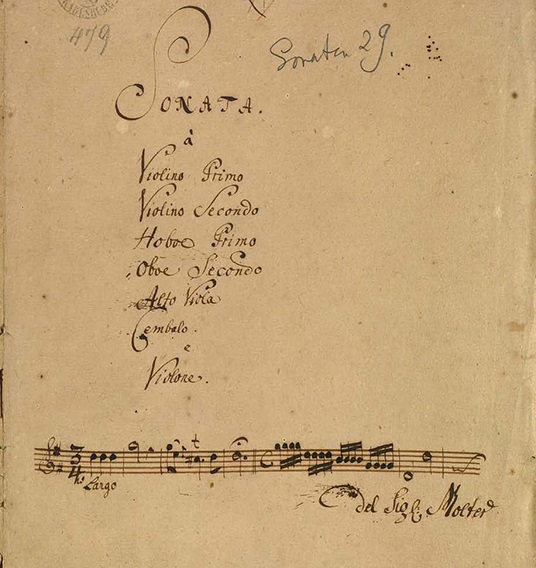 479
Sonaten 29.
SONATA.
à
Violino Primo
Violino Secondo
Hoboe Primo
Oboe Secondo
Alto Viola
Cembalo.
e
Violone.
3
4
t
Largo
del Sig: Molter